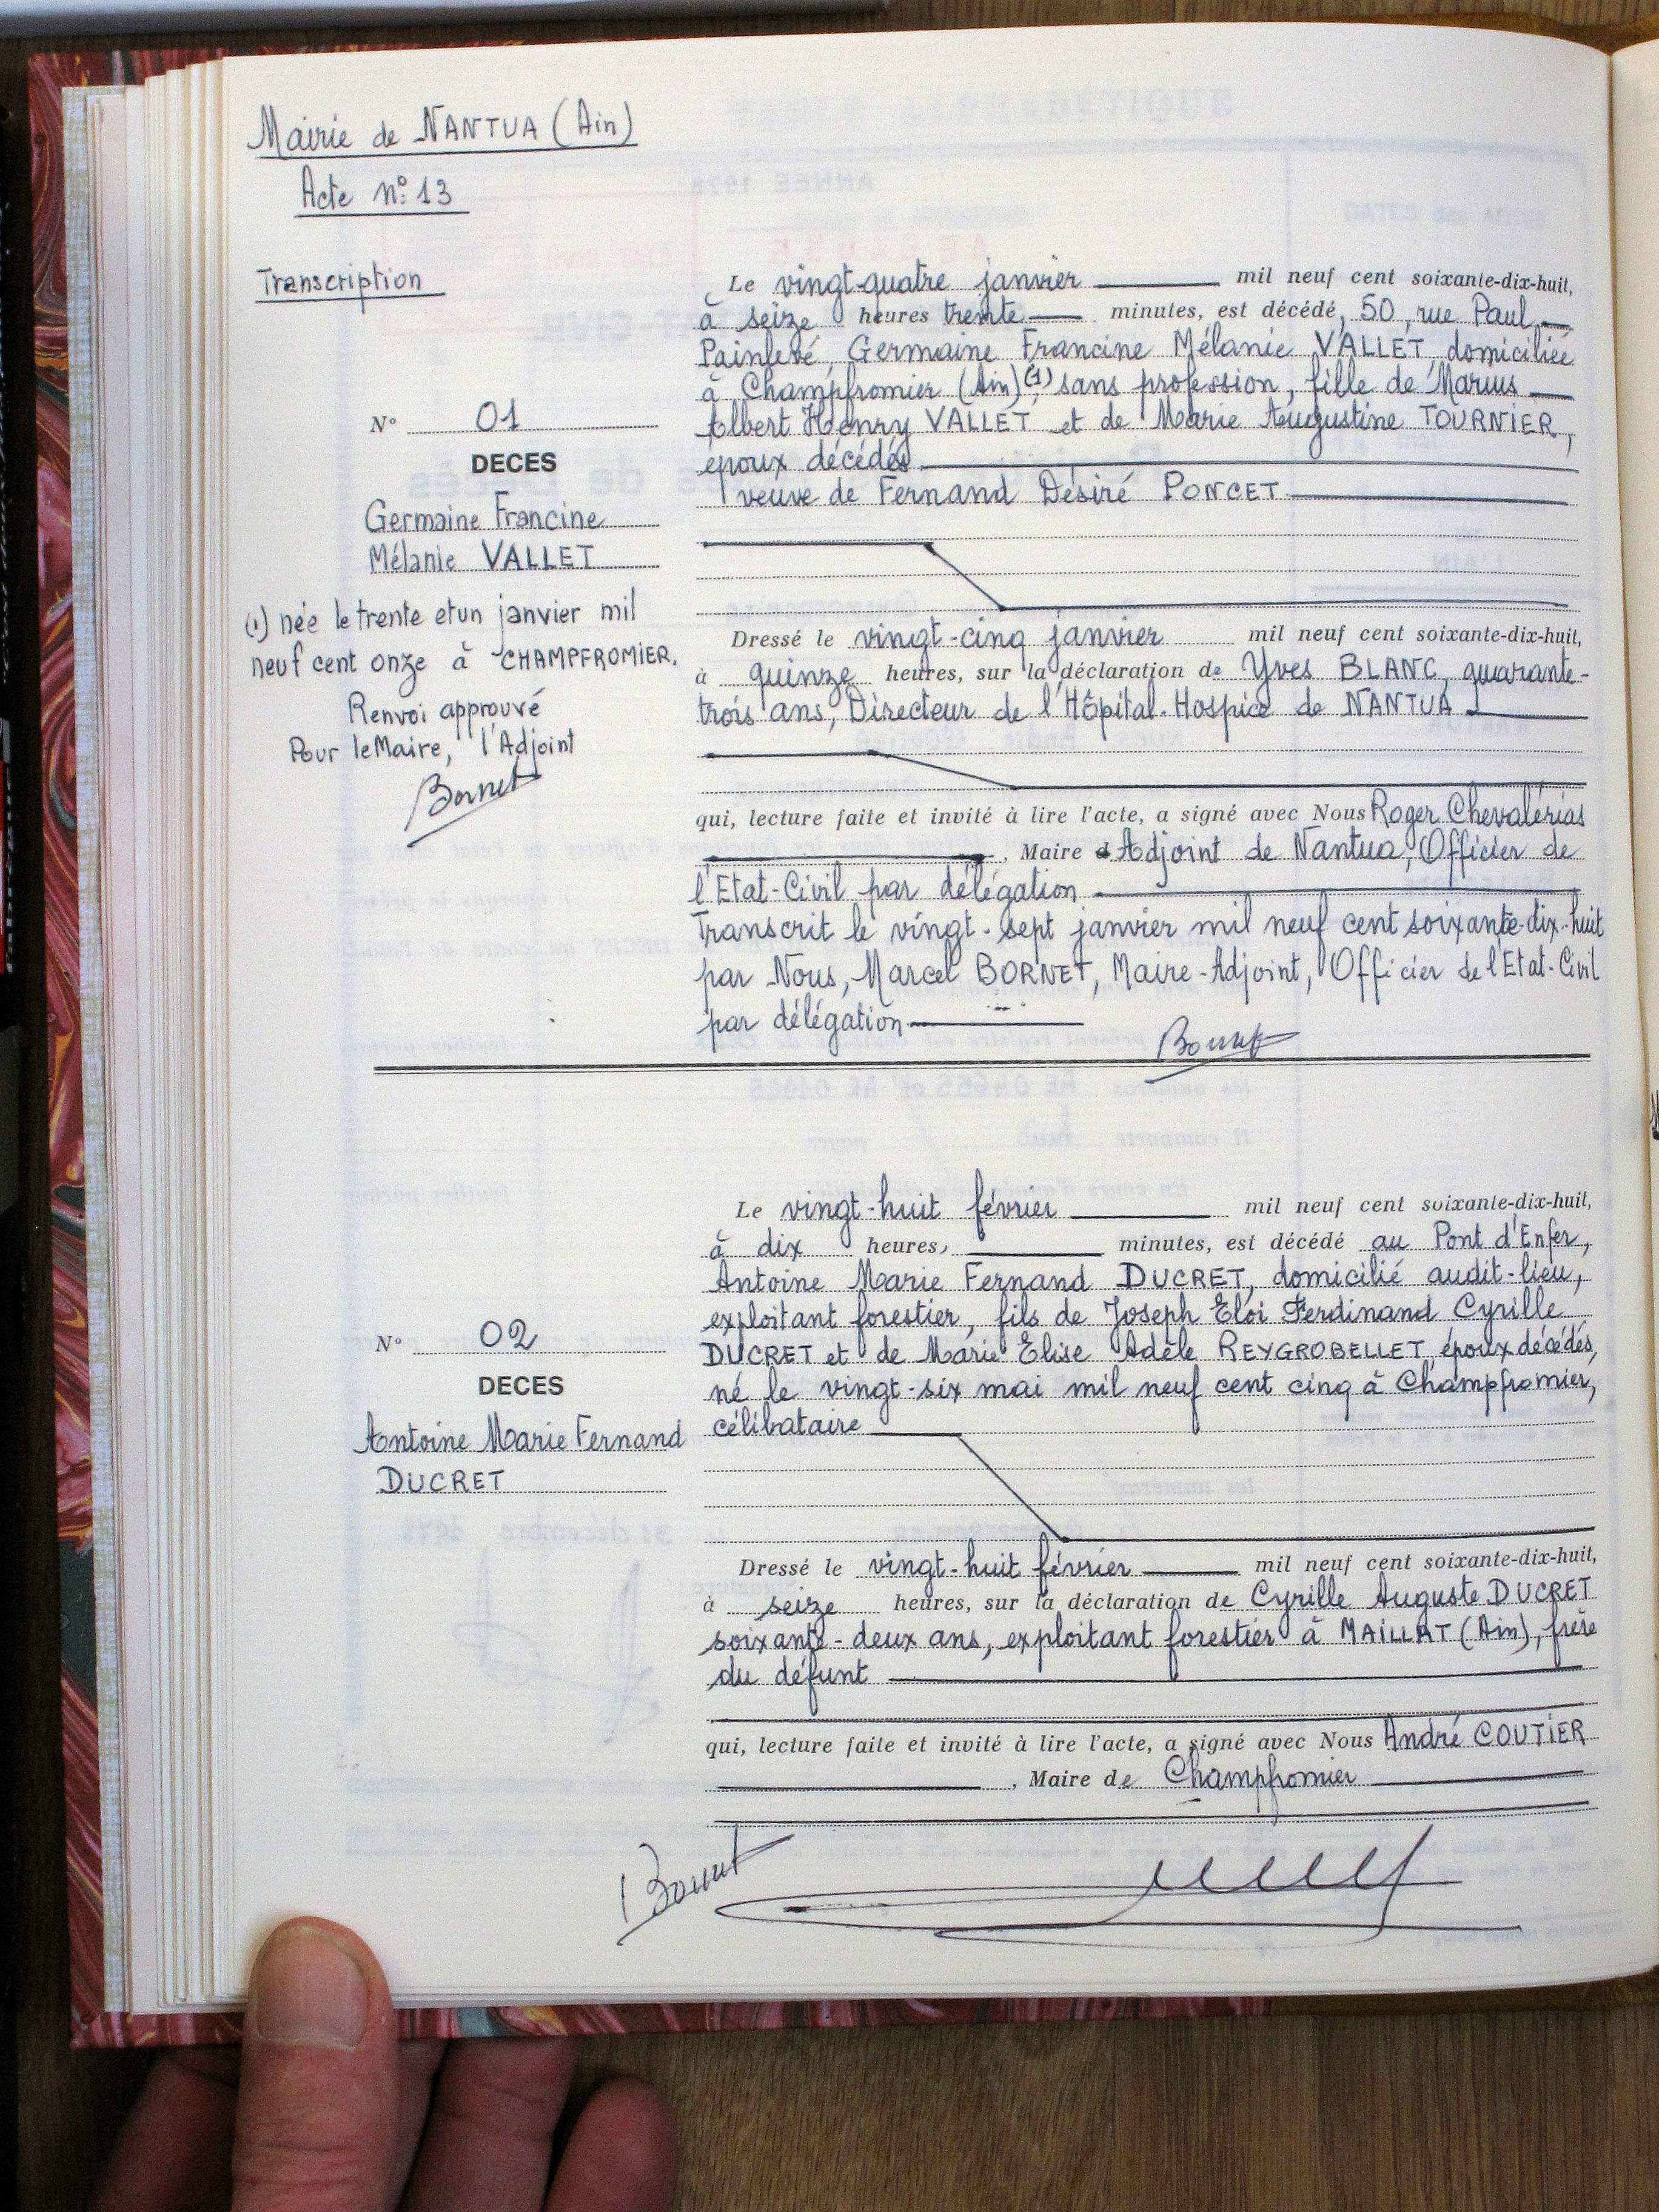 Mairie de NANTUA (Ain)
Acte n° 13
Transcription
N° 01
DECES
Germaine Francine
Mélanie VALLET
(1) née le trente et un janvier mil
neuf cent onze à CHAMPFROMIER.
Renvoi approuvé
Pour le Maire, l'Adjoint
Bornet
Le vingt-quatre janvier mil neuf cent soixante-dix-huit,
à seize heures trente minutes, est décédé, 50, rue Paul
Painlevé, Germaine Francine Mélanie VALLET, domiciliée
à Champfromier (Ain) (1), sans profession, fille de Marius
Albert Henry VALLET et de Marie Augustine TOURNIER,
époux décédés
veuve de Fernand Désiré PONCET
Dressé le vingt-cinq janvier mil neuf cent soixante-dix-huit,
à quinze heures, sur la déclaration de Yves BLANC, quarante-
trois ans, Directeur de l'Hôpital-Hospice de NANTUA
qui, lecture faite et invité à lire l'acte, a signé avec Nous Roger Chevalérias
, Maire Adjoint de Nantua, Officier de
l'Etat-Civil par délégation
Transcrit le vingt-sept janvier mil neuf cent soixante-dix-huit
par Nous, Marcel BORNET, Maire-Adjoint, Officier de l'Etat-Civil
par délégation
Bornet
N° 02
DECES
Antoine Marie Fernand
DUCRET
Le vingt-huit février mil neuf cent soixante-dix-huit,
à dix heures, minutes, est décédé au Pont d'Enfer,
Antoine Marie Fernand DUCRET, domicilié audit-lieu,
exploitant forestier, fils de Joseph Eloi Ferdinand Cyrille
DUCRET et de Marie Elise Adèle REYGROBELLET, époux décédés,
né le vingt-six mai mil neuf cent cinq à Champfromier,
célibataire
Dressé le vingt-huit février mil neuf cent soixante-dix-huit,
à seize heures, sur la déclaration de Cyrille Auguste DUCRET
soixante-deux ans, exploitant forestier à MAILLAT (Ain), frère
du défunt
qui, lecture faite et invité à lire l'acte, a signé avec Nous André COUTIER
, Maire de Champfromier
Bornet